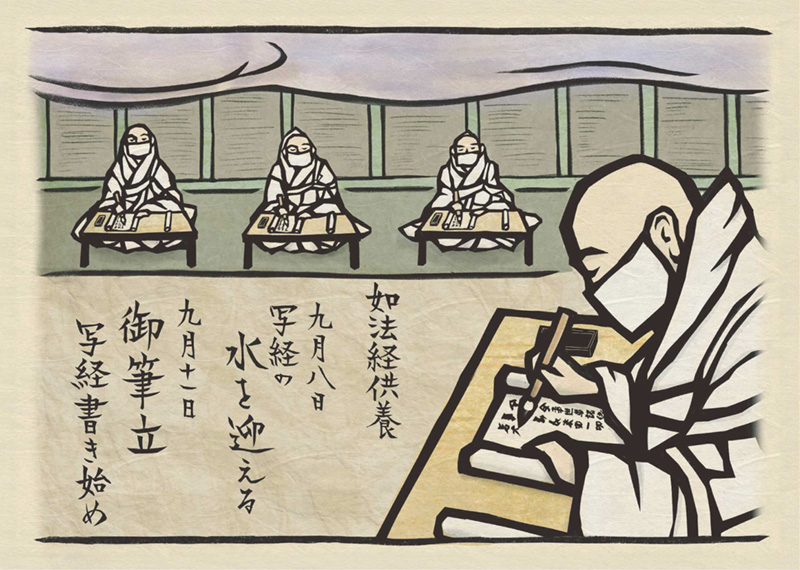 如法経供養
九月八日
写経の
水を迎える
九月十一日
御筆立
写経書き始め